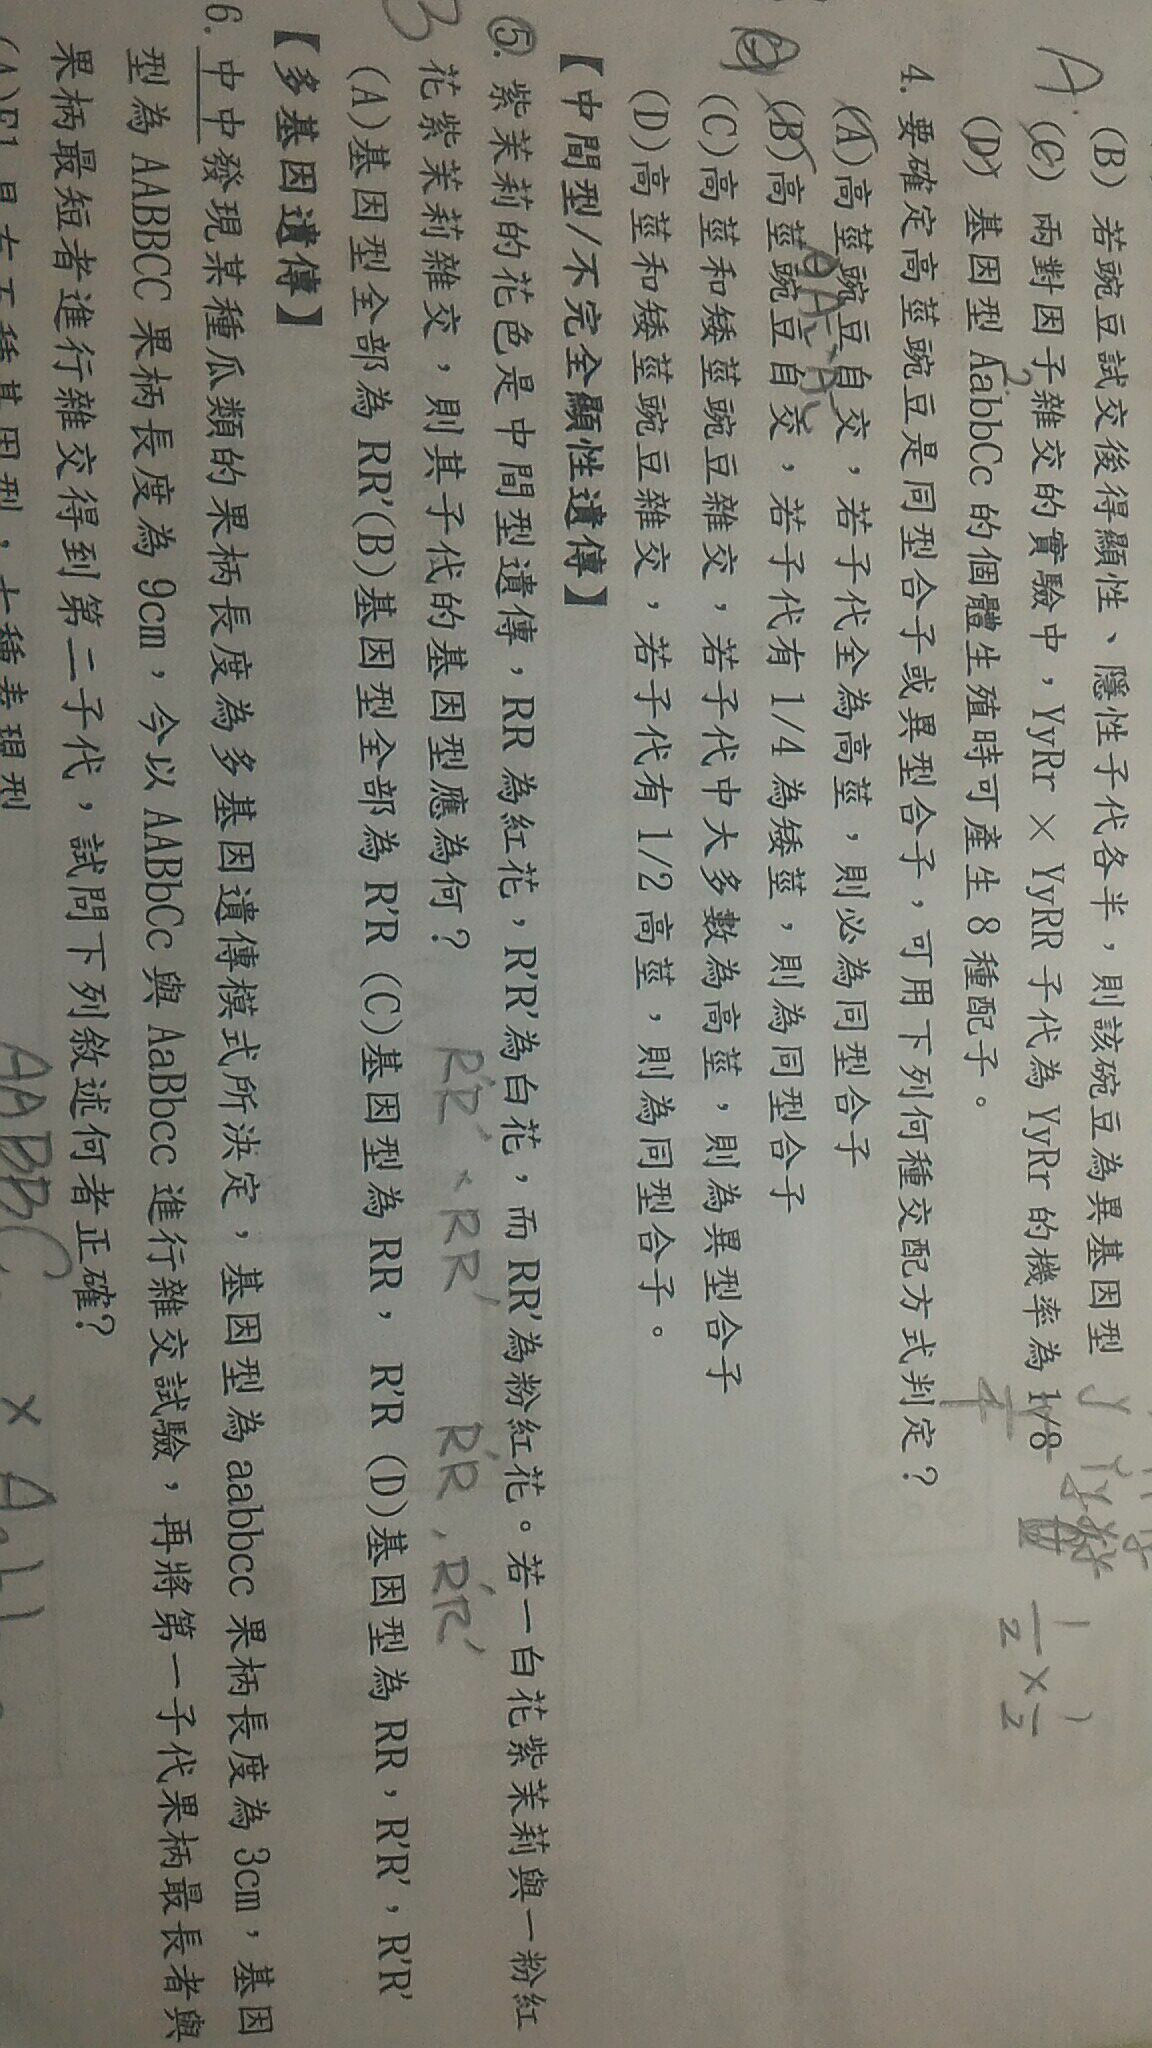 A.
(B) 若豌豆試交後得顯性、隱性子代各半，則該碗豆為異基因型
(C) 兩對因子雜交的實驗中，YyRr × YyRR 子代為 YyRr 的機率為 1/8
1/4
1/2 × 1/2
2
(D) 基因型 AabbCc 的個體生殖時可產生 8 種配子。
4. 要確定高莖豌豆是同型合子或異型合子，可用下列何種交配方式判定？
(A)高莖豌豆自交，若子代全為高莖，則必為同型合子
(B)高莖豌豆自交，若子代有 1/4 為矮莖，則為同型合子
(C)高莖和矮莖豌豆雜交，若子代中大多數為高莖，則為異型合子
(D)高莖和矮莖豌豆雜交，若子代有 1/2 高莖，則為同型合子。
【中間型/不完全顯性遺傳】
⑤. 紫茉莉的花色是中間型遺傳，RR 為紅花，R'R'為白花，而 RR'為粉紅花。若一白花紫茉莉與一粉紅
花紫茉莉雜交，則其子代的基因型應為何？
R'R' × RR' R'R , R'R'
(A)基因型全部為 RR'(B)基因型全部為 R'R (C)基因型為 RR， R'R (D)基因型為 RR，R'R'，R'R'
【多基因遺傳】
6. 中中發現某種瓜類的果柄長度為多基因遺傳模式所決定，基因型為 aabbcc 果柄長度為 3cm，基因
型為 AABBCC 果柄長度為 9cm，今以 AABbCc 與 AaBbcc 進行雜交試驗，再將第一子代果柄最長者與
果柄最短者進行雜交得到第二子代，試問下列敘述何者正確？
AABBC × A